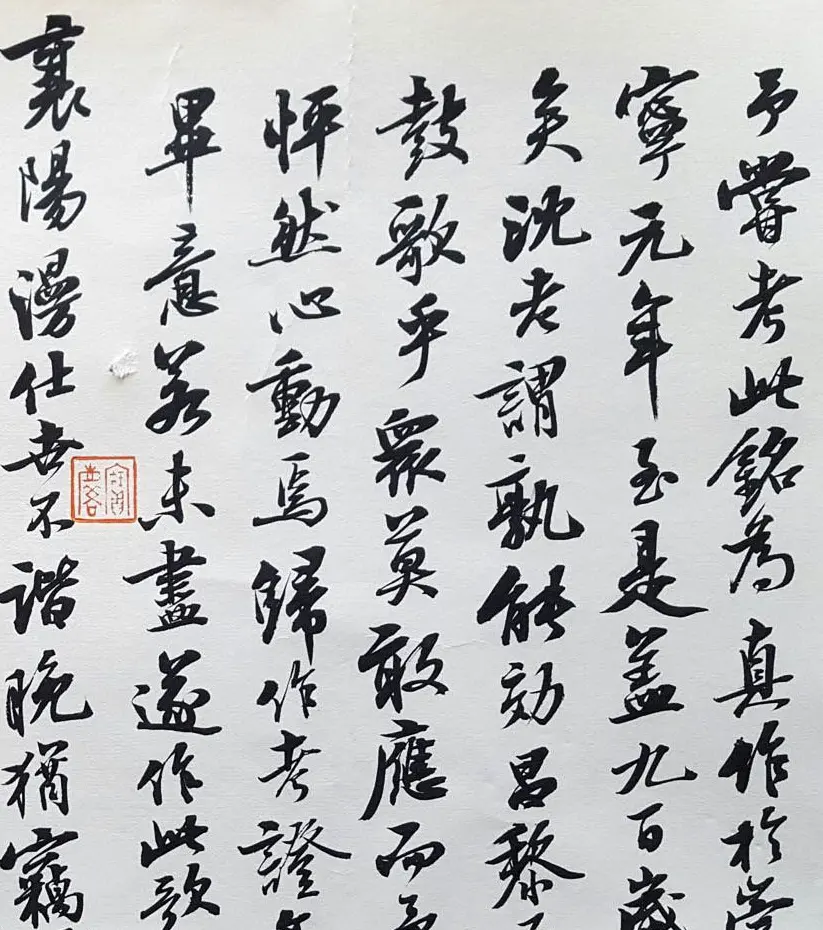 予嘗考此銘為真作於崇
寧元年至是盖九百歲
矣沈老謂孰能効昌黎
鼓歌乎眾莫敢應而予
怦然心動焉歸作考證
畢意若未盡遂作此歌
襄陽漫仕世不諧晚猶竊